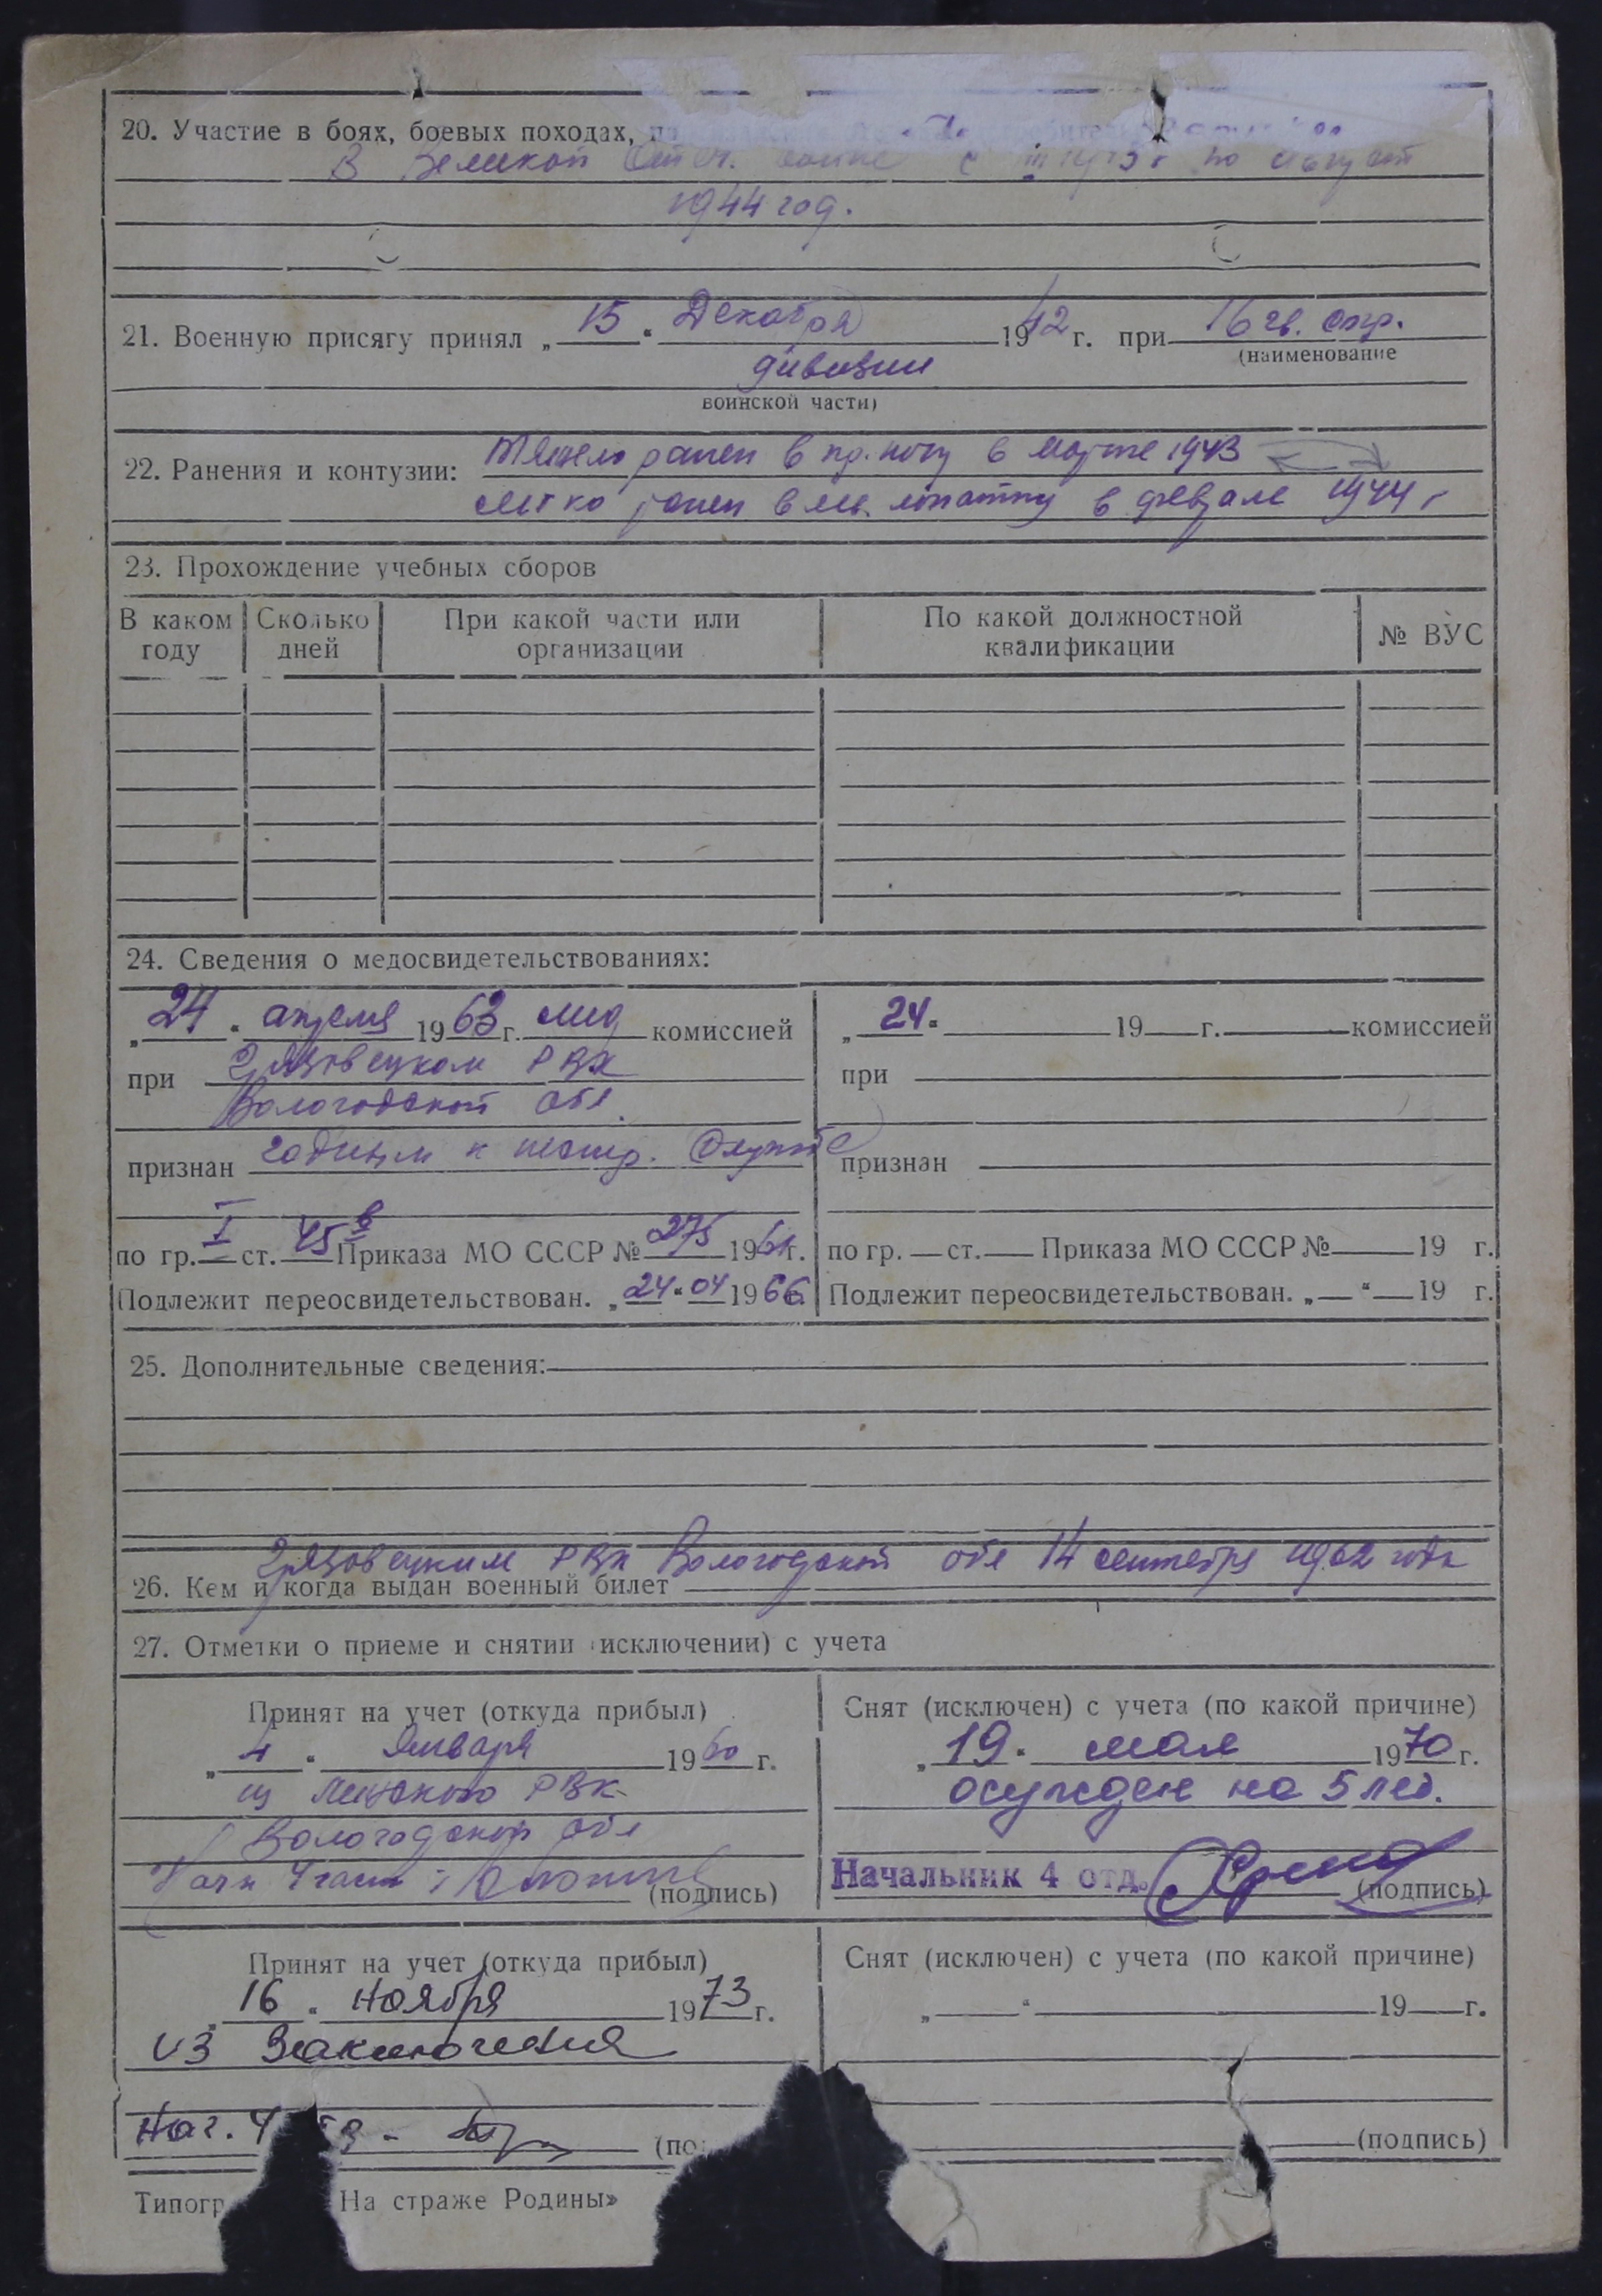 20. Участие в боях, боевых походах,
В Великой Отеч. войне с 1943 г по август
1944 год.
21. Военную присягу принял „15“ Декабря 1942 г. при 16 гв. стр.
(наименование
дивизии
воинской части)
22. Ранения и контузии: тяжело ранен в пр. ногу в марте 1943
легко ранен в лев. лопатку в феврале 1944 г
23. Прохождение учебных сборов
В каком году | Сколько дней | При какой части или организации | По какой должностной квалификации | № ВУС
24. Сведения о медосвидетельствованиях:
„24“ апреля 1963 г. мед комиссией
при Грязовецком РВК
Вологодской обл.
признан годным к нестр. службе
по гр. I ст. 45 в Приказа МО СССР № 275 1961 г.
Подлежит переосвидетельствован. „24“ 04 1966 г.
„24“ 19 г. комиссией
при
признан
по гр. ст. Приказа МО СССР № 19 г.
Подлежит переосвидетельствован. „ “ 19 г.
25. Дополнительные сведения:
Грязовецким РВК Вологодской обл 14 сентября 1962 года
26. Кем и когда выдан военный билет
27. Отметки о приеме и снятии (исключении) с учета
Принят на учет (откуда прибыл)
„4“ Января 1960 г.
из РВК
Вологодской обл
Нач 4 части:
(подпись)
Снят (исключен) с учета (по какой причине)
„19“ мая 1970 г.
осужден на 5 лет.
Начальник 4 отд.
(подпись)
Принят на учет (откуда прибыл)
„16“ Ноября 1973 г.
из Заключения
Нач. 4
(по
Снят (исключен) с учета (по какой причине)
„ “ 19 г.
(подпись)
Типогр На страже Родины»